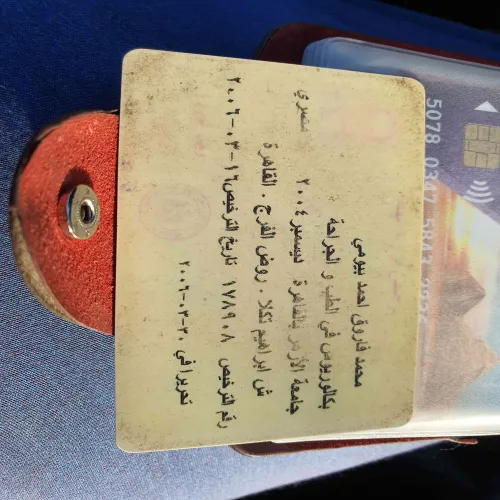 محمد فاروق احمد بيومي
بكالوريوس في الطب و الجراحة
جامعة الأزهر بالقاهرة ديسمبر ٢٠٠٤ مصري
ش ابراهيم تكلا . روض الفرج . القاهرة
رقم الترخيص ١٧٨٩٠٨ تاريخ الترخيص ١٦-٠٣-٢٠٠٦
تحريرا في ٣٠-٠٣-٢٠٠٦
5078 0347 5843